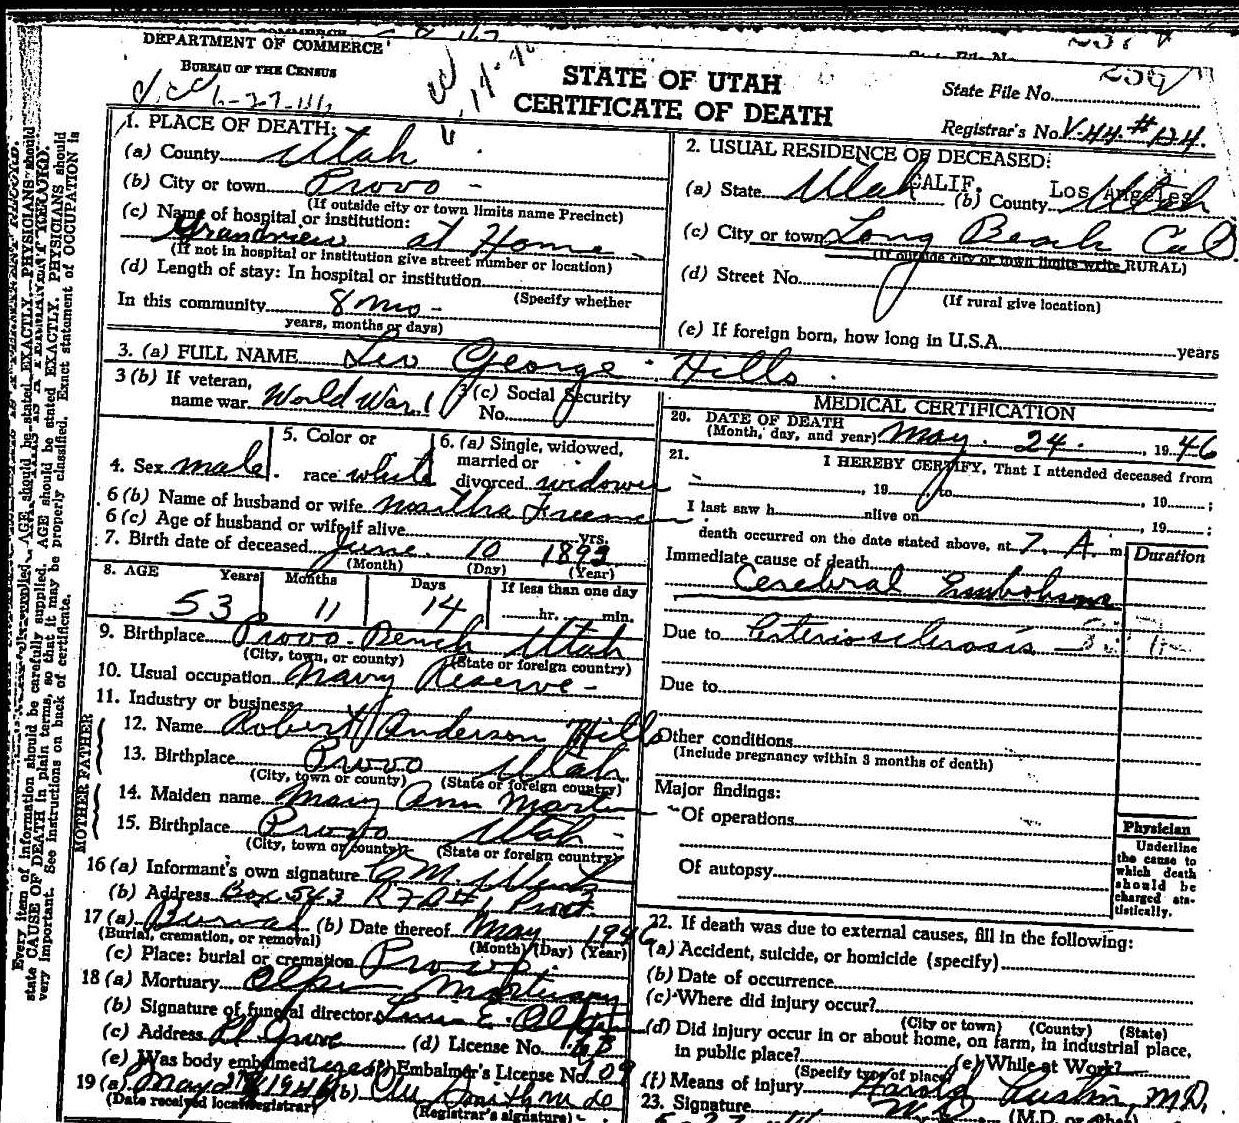 DEPARTMENT OF COMMERCE
BUREAU OF THE CENSUS
STATE OF UTAH
CERTIFICATE OF DEATH
State File No.
Registrar's No. V.44 #124
1. PLACE OF DEATH:
(a) County Utah
(b) City or town Provo -
(If outside city or town limits name Precinct)
(c) Name of hospital or institution:
Grandview at Home
(If not in hospital or institution give street number or location)
(d) Length of stay: In hospital or institution
(Specify whether
In this community 8 mo -
years, months or days)
2. USUAL RESIDENCE OF DECEASED:
(a) State Utah CALIF. (b) County Utah Los Angeles
(c) City or town Long Beach Cal.
(If outside city or town limits write RURAL)
(d) Street No.
(If rural give location)
(e) If foreign born, how long in U.S.A. years
3. (a) FULL NAME Leo George Hills
3 (b) If veteran, name war World War 1 3 (c) Social Security No.
4. Sex male 5. Color or race white 6. (a) Single, widowed, married or divorced widower
6 (b) Name of husband or wife Martha Freeman
6 (c) Age of husband or wife if alive yrs.
7. Birth date of deceased June 10 1892
(Month) (Day) (Year)
8. AGE Years Months Days If less than one day
53 11 14 hr. min.
9. Birthplace Provo Bench Utah
(City, town, or county) (State or foreign country)
10. Usual occupation Navy Reserve -
11. Industry or business
FATHER
12. Name Robert Anderson Hills
13. Birthplace Provo Utah
(City, town or county) (State or foreign country)
MOTHER
14. Maiden name Mary Ann Martin
15. Birthplace Provo Utah
(City, town or county) (State or foreign country)
16 (a) Informant's own signature
(b) Address Box 543 RFD #1 Provo
17 (a) Burial (b) Date thereof May 1946
(Burial, cremation, or removal) (Month) (Day) (Year)
(c) Place: burial or cremation Provo
18 (a) Mortuary Olpin Mortuary
(b) Signature of funeral director E. Olpin
(c) Address Pl Grove (d) License No.
(e) Was body embalmed? yes (f) Embalmer's License No. 109
19 (a) May 27 1946 (b)
(Date received local registrar) (Registrar's signature)
MEDICAL CERTIFICATION
20. DATE OF DEATH
(Month, day, and year) May 24 1946
21. I HEREBY CERTIFY, That I attended deceased from
, 19 , to , 19 ;
I last saw h alive on , 19 ;
death occurred on the date stated above, at 7 A. m.
Immediate cause of death Duration
Cerebral Embolism
Due to Arteriosclerosis
Due to
Other conditions
(Include pregnancy within 3 months of death)
Major findings:
Of operations
Of autopsy
Physician
Underline the cause to which death should be charged statistically.
22. If death was due to external causes, fill in the following:
(a) Accident, suicide, or homicide (specify)
(b) Date of occurrence
(c) Where did injury occur?
(City or town) (County) (State)
(d) Did injury occur in or about home, on farm, in industrial place,
in public place? (e) While at Work?
(Specify type of place)
(f) Means of injury Harold Austin, M.D.
23. Signature (M.D. or other)